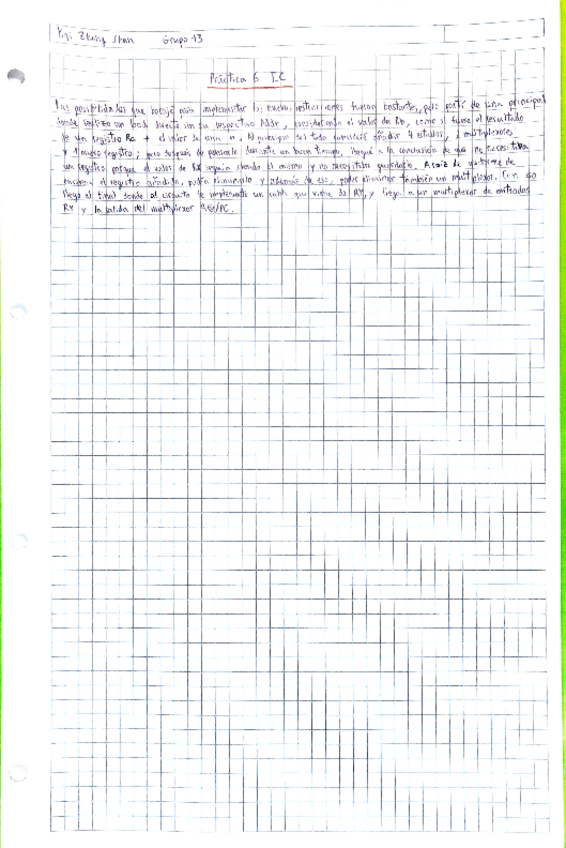 Yiqi Zhang Shan Grupo 13
Práctica 6 I.C
Las posibilidades que barajé para implementar las nuevas instrucciones fueron bastantes, pero partí de una principal
donde realizo un load fuente con su respectivo Addr, considerando el valor de Rb, como si fuese el resultado
de un registro Ra + el valor de una n. Al principio del todo conseguí añadir 4 estados, 2 multiplexores
y 1 nuevo registro; pero después de pensarlo durante un buen tiempo, llegué a la conclusión de que no necesitaba
un registro porque el valor de RX seguía siendo el mismo y no necesitaba guardarlo. Acabé de quitarme de
encima el registro añadido, pude eliminarlo y además de eso, poder eliminar también un multiplexor. Con eso
llego al final donde al circuito le implementé un cable que viene de RX, y llega a un multiplexor de entradas
RX y la salida del multiplexor @Es/PC.